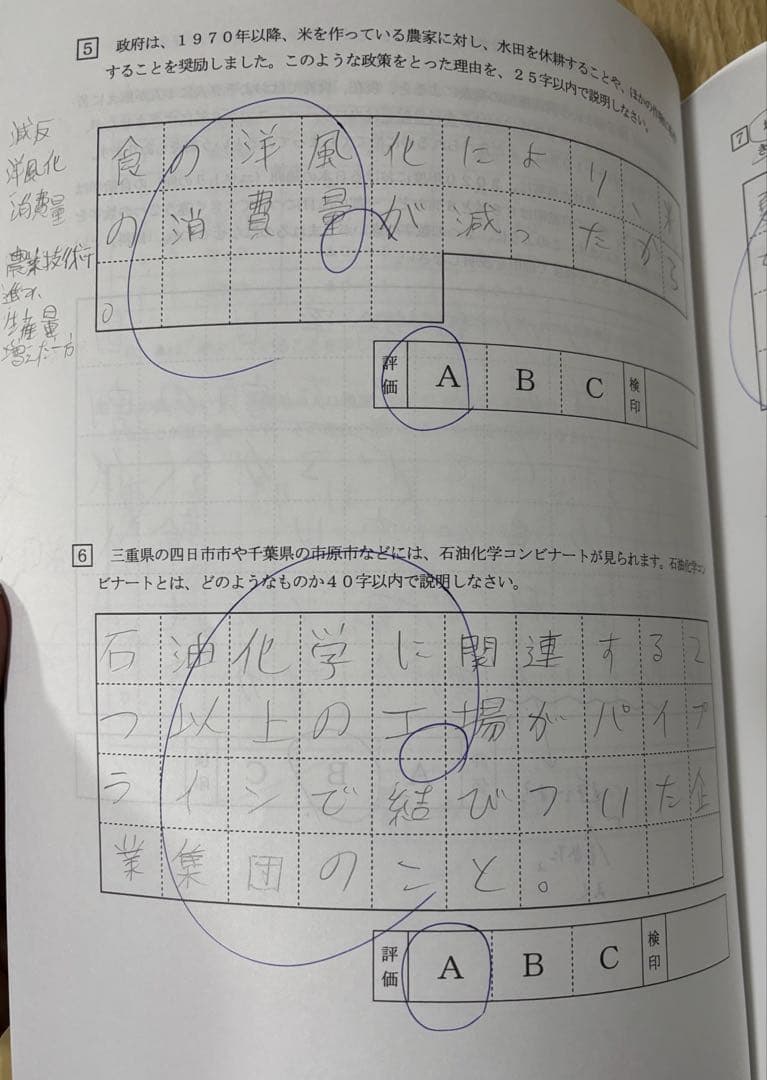 5 政府は、1970年以降、米を作っている農家に対し、水田を休耕することや、ほかの作物に
することを奨励しました。このような政策をとった理由を、25字以内で説明しなさい。
減反
洋風化
消費量
農業技術
進み、
生産量
増えた一方
食の洋風化により、米
の消費量が減ったから
。
評価 A B C 検印
6 三重県の四日市市や千葉県の市原市などには、石油化学コンビナートが見られます。石油化学コン
ビナートとは、どのようなものか40字以内で説明しなさい。
石油化学に関連する2
つ以上の工場がパイプ
ラインで結びついた企
業集団のこと。
評価 A B C 検印
7